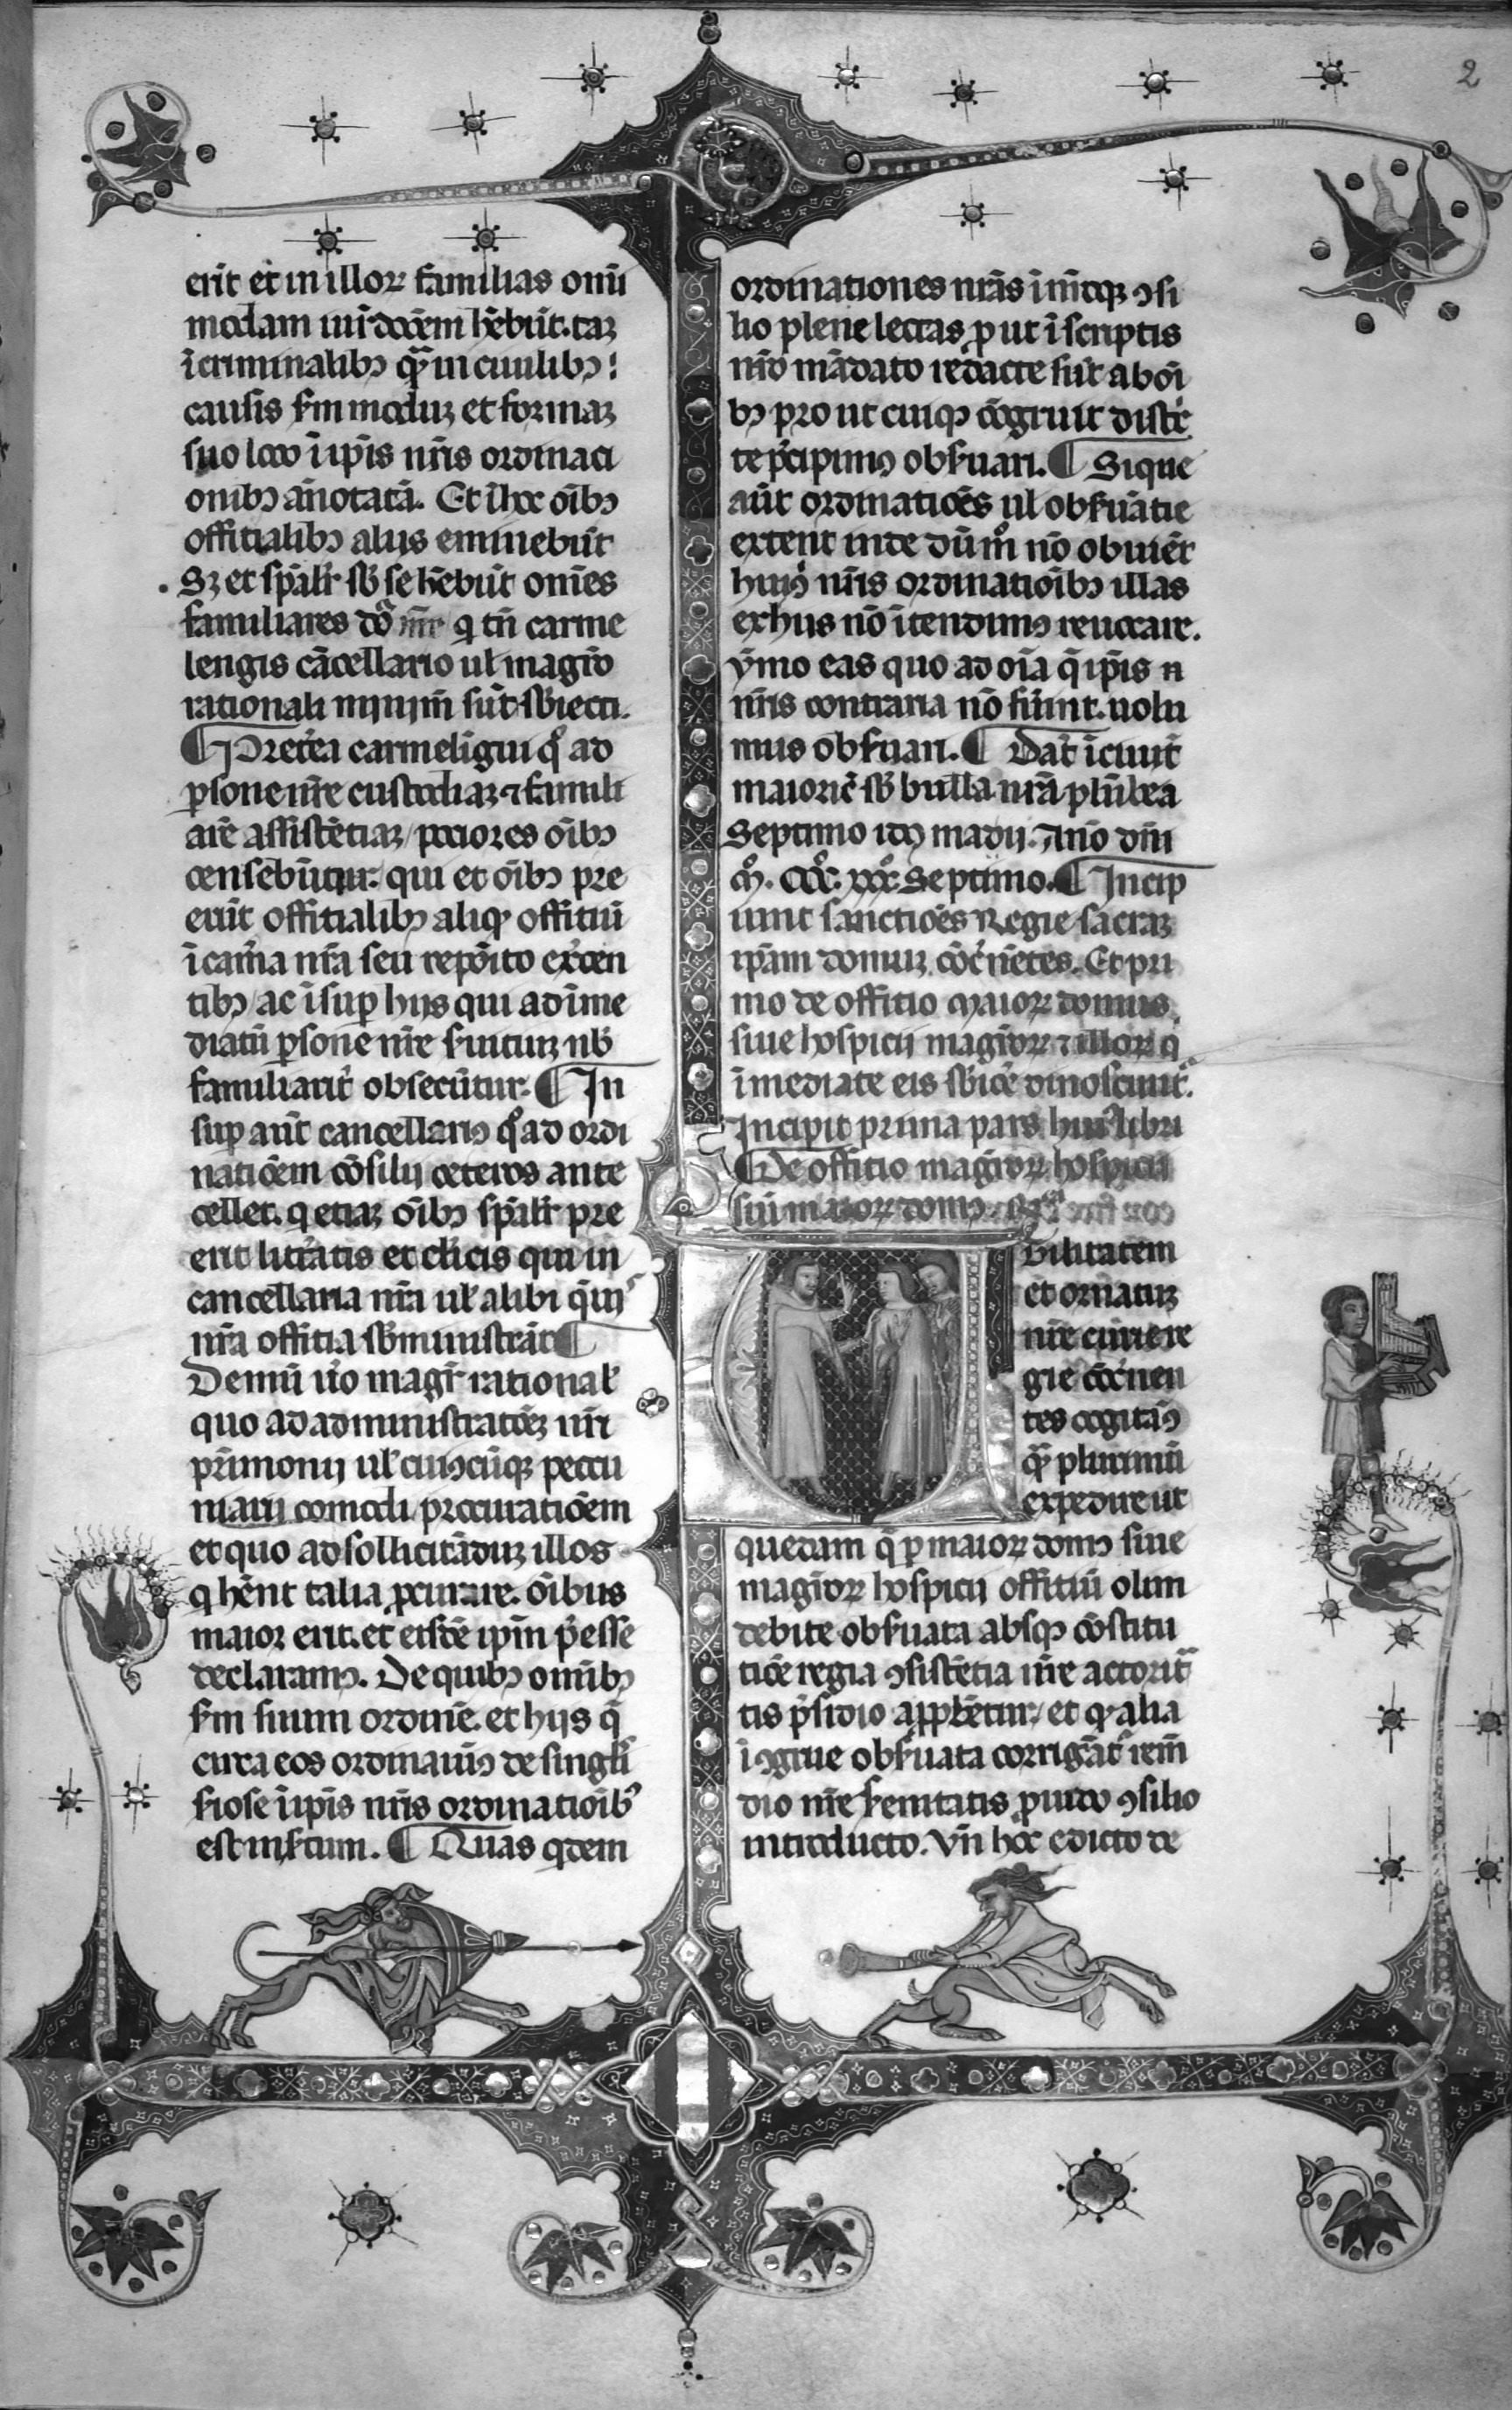 2
erit et in illoꝝ familias om̄
modam iurᵈdcōem hēbūt. taꝫ
ī criminalibꝫ qᵃ̄ in ciuilibꝫ
causis scďm moduꝫ et formaꝫ
suo loco ī ip̄is nr̄is ordinaci
onibꝫ ānotatā. Et ī hoc oībꝫ
offitialibꝫ alijs eminebūt
Sꝫ et sp̄alit̄ sb̄ se hēbūt om̄es
familiares dōᵒ nr̄e q̇ tn̄ carme
lengis cācellario ul̄ magr̄o
rationali mīnim̄ sūt sb̄iecti.
¶ Pret̄ea carmelīgui qͦ ad
ꝑsone nr̄e custodiaꝫ ⁊ famili
arē assistētiaꝫ pociores oībꝫ
censebūtur: qui et oībꝫ pre
erūt offitialibꝫ aliqͥ offitiū
ī cam̄a nr̄a seu repōito exc̄en
tibꝫ ac īsuꝑ hijs qui ad īme
diatū ꝑsone nr̄e ſuituꝫ nb̄
familiarit̄ obsecūtur. ¶ In
suꝑ aūt cancellariꝰ qͦ ad ordi
natiōem cōsilij ceteros ante
cellet. q̇ etiaꝫ oībꝫ sp̄alit̄ pre
erit litt̄atis et cl̄icis qui in
cancellaria nr̄a ul̄ alibi q̄uis
nr̄a offitia sb̄ministrāt ¶
Demū ūo magr̄ rational̄
quo ad administratōeꝫ nr̄i
pr̄imonij ul̄ cuiꝰcūqꝫ peccu
niarij comodi procuratiōem
et quo ad sollicitāduꝫ illos
q̇ hēnt talia ꝓcurare. oībus
maior erit. et eisdē ip̄m p̄esse
declaramꝰ. De quibꝫ omībꝫ
scďm suum ordinē. et hijs q̄
circa eos ordinauimꝰ de singl̄is
ſiose ī ip̄is nr̄is ordinatiōibꝫ
est inſtum. ¶ Quas qͥdem
ordinationes nr̄as ī nr̄oqꝫ ꝯsi
lio plene lectas ꝓut ī scriptis
nr̄o mādato redacte sūt ab oī
bꝫ prout cuiqꝫ cōgruit disťc
te p̄cipimꝰ obſuari. ¶ Sique
aūt ordinatiōes ul̄ obſuātie
extent inde dūmͦ nō obuiēt
huiꝰ nr̄is ordinatiōibꝫ illas
ex hijs nō ītendimꝰ reuocare.
ymo eas quo ad oīa q̄ ip̄is n̄
nr̄is contraria nō fūint. uolu
mus obſuari. ¶ Dat̄ ī ciuit̄
maioric̄ sb̄ bulla nr̄a plūbea
Septimo idꝰ madij. Ano dn̄i
Mͦ. CCCͦ. xxxͦ. Septimo. ¶ Incip
iunt sanctiōes Regie sacraꝫ
ip̄am domuꝫ cōc̄nētes. Et pri
mo de offitio maioꝝ domus
siue hospicij magr̄oꝝ ⁊ illoꝝ q̇
īmediate eis sb̄ice dinoscunt̄.
Incipit prima pars huiꝰ libri
De offitio magr̄oꝝ hospicij
siū maioꝝ domꝰ.
Vtilitatem
et ornatuꝫ
nr̄e curie re
gie cōc̄nen
tes cogitāꝰ
qᵃ̄ plurimū
expedire ut
quedam q̄ ꝑ maioꝝ domꝰ siue
magr̄oꝝ hospicij offitiū olim
debite obſuata absqꝫ cōstitu
tiōe regia ꝯsistētia nr̄e actorit̄
tis p̄sidio app̄bētur, et qͥ alia
īꝯgrue obſuata corrigāt̄ rem̄
dio nr̄e ſenitatis ꝓuido ꝯsilio
introducto. Vn̄ hoc edicto de